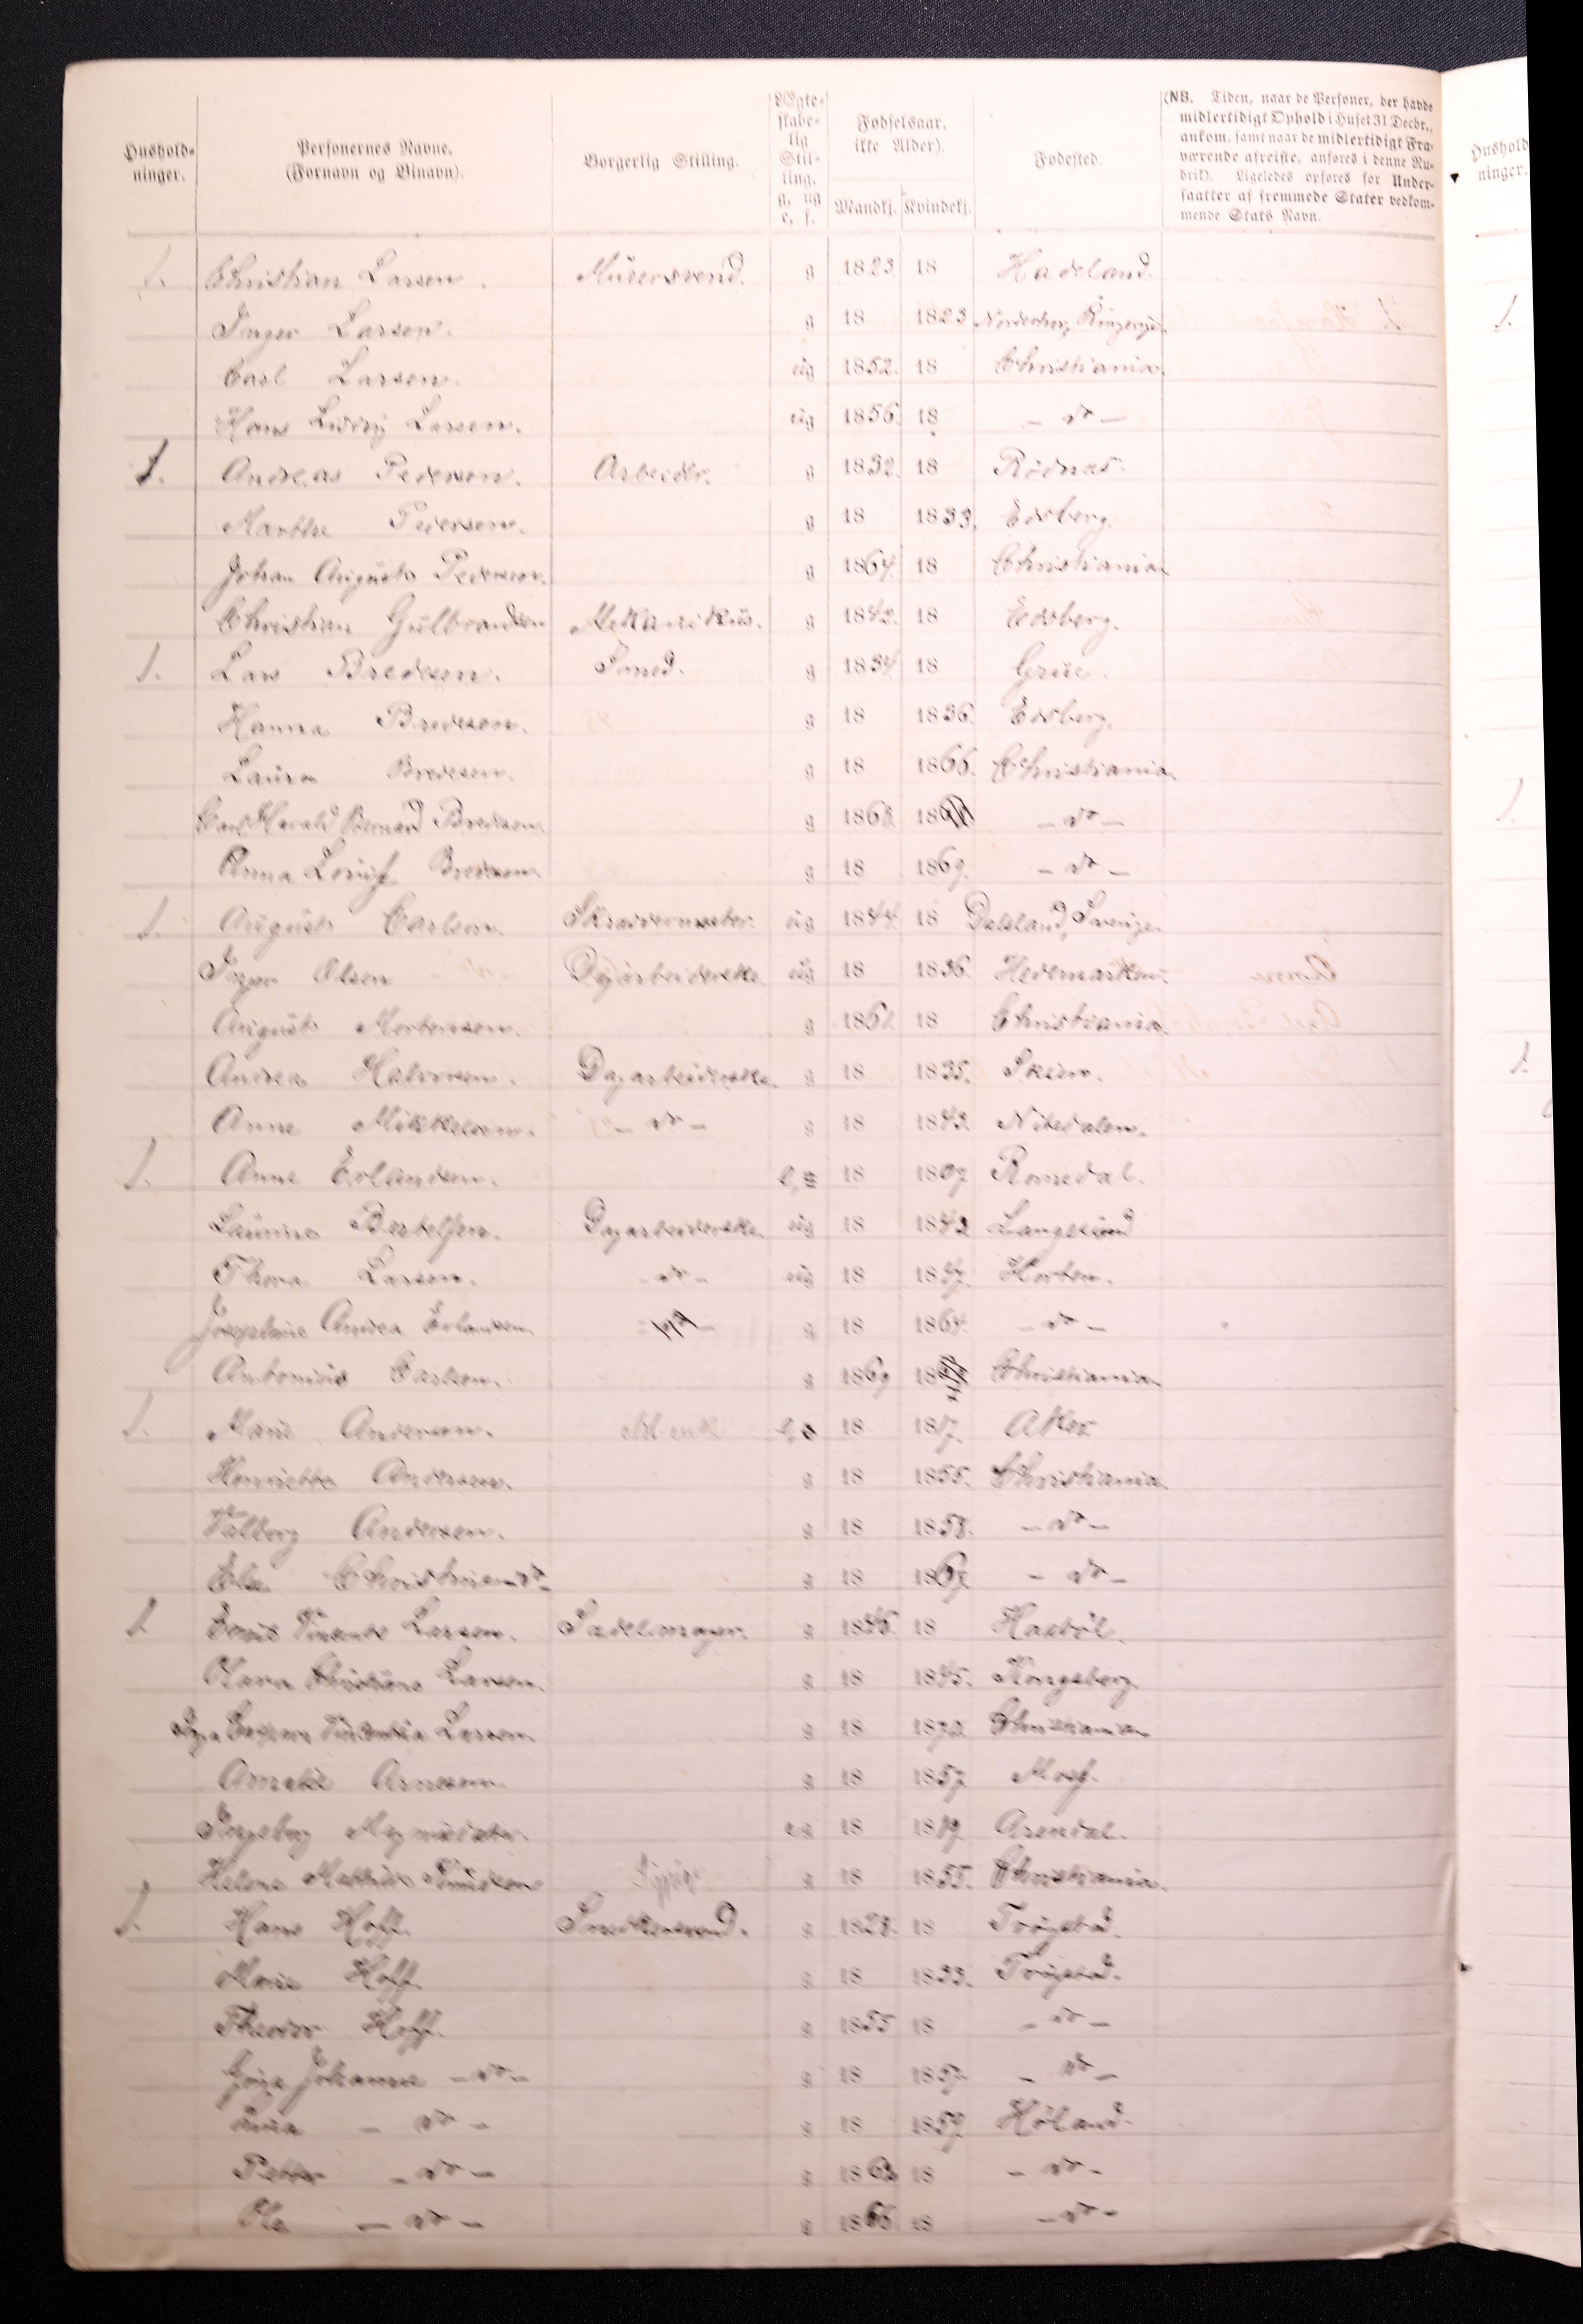 Hushold-
ninger.
Personernes Navne.
(Fornavn og Binavn).
Borgerlig Stilling.
Ægte-
skabe-
lig
Stil-
ling.
g, ug
e, f.
Fødselsaar.
ikke Alder).
Mandkj. Kvindekj.
Fødested.
(NB. Tiden, naar de Personer, der havde
midlertidigt Ophold i Huset 31 Decbr.,
ankom, samt naar de midlertidigt Fra-
værende afreiste, anføres i denne Ru-
brik). Ligeledes opføres for Under-
saatter af fremmede Stater vedkom-
mende Stats Navn.
Hushold
ninger.
1. Christian Larsen. Murersvend. g 1823. 18 Hadeland.
Inger Larsen. g 18 1823 Norderhov, Ringerige.
Carl Larsen. ug 1852. 18 Christiania.
Hans Ludvig Larsen. ug 1856. 18 – do –
1. Andreas Pedersen. Arbeider. g 1832. 18 Rødnæs.
Marthe Pedersen. g 18 1833. Edsberg.
Johan August Pedersen. g 1864. 18 Christiania
Christian Gulbrandsen Mekanikus. g 1842. 18 Edsberg.
1. Lars Bredesen. Smed. g 1834 18 Grue.
Hanna Bredesen. g 18 1836. Edsberg.
Laura Bredesen. g 18 1866. Christiania
Carl Harald Bernard Bredesen g 1868. 18 – do –
Anna Lovise Bredesen g 18 1869. – do –
1. August Carlsen. Skrædermester. ug 1844. 18 Dalsland, Sverige.
Inger Olsen Dagarbeiderske. ug 18 1836. Hedemarken.
August Mortensen. g 1861. 18 Christiania.
Andrea Halvorsen. Dagarbeiderske. g 18 1835. Skien.
Anne Mikkelsen. – do – g 18 1843. Nitedalen.
1. Anne Erlandsen. e, 18 1807 Romedal.
Laurine Bertelsen. Dagarbeiderske. ug 18 1842 Langesund
Thora Larsen. – do – ug 18 1847. Horten.
Josephine Andrea Erlandsen. g 18 1864. – do –
Antonius Carlsen. g 1869 18 Christiania
1. Marie Andersen. e, 18 1817. Aker.
Henriette Andersen. g 18 1855. Christiania
Valborg Andersen. g 18 1858. – do –
Else g 18 1867 – do –
1 Larsen. Sadelmager. g 1846. 18
Christiane Larsen. g 18 1845. Kongsberg.
Larsen. g 18 1872. Christiania
Amalie Arnesen. g 18 1857. Moss.
Ingeborg eg 18 1819. Arendal.
Helene Mathilde Knudsen g 18 1855. Christiania.
1. Hans Hoff. Snedkersvend. g 1828. 18 Trøgstad.
Marie Hoff. g 18 1833. Trøgstad.
Theodor Hoff. g 1855 18 – do –
Johanne – do – g 18 1857. – do –
– do – g 18 1859 Høland.
Petter – do – g 1863 18 – do –
Ole – do – g 1866 18 – do –